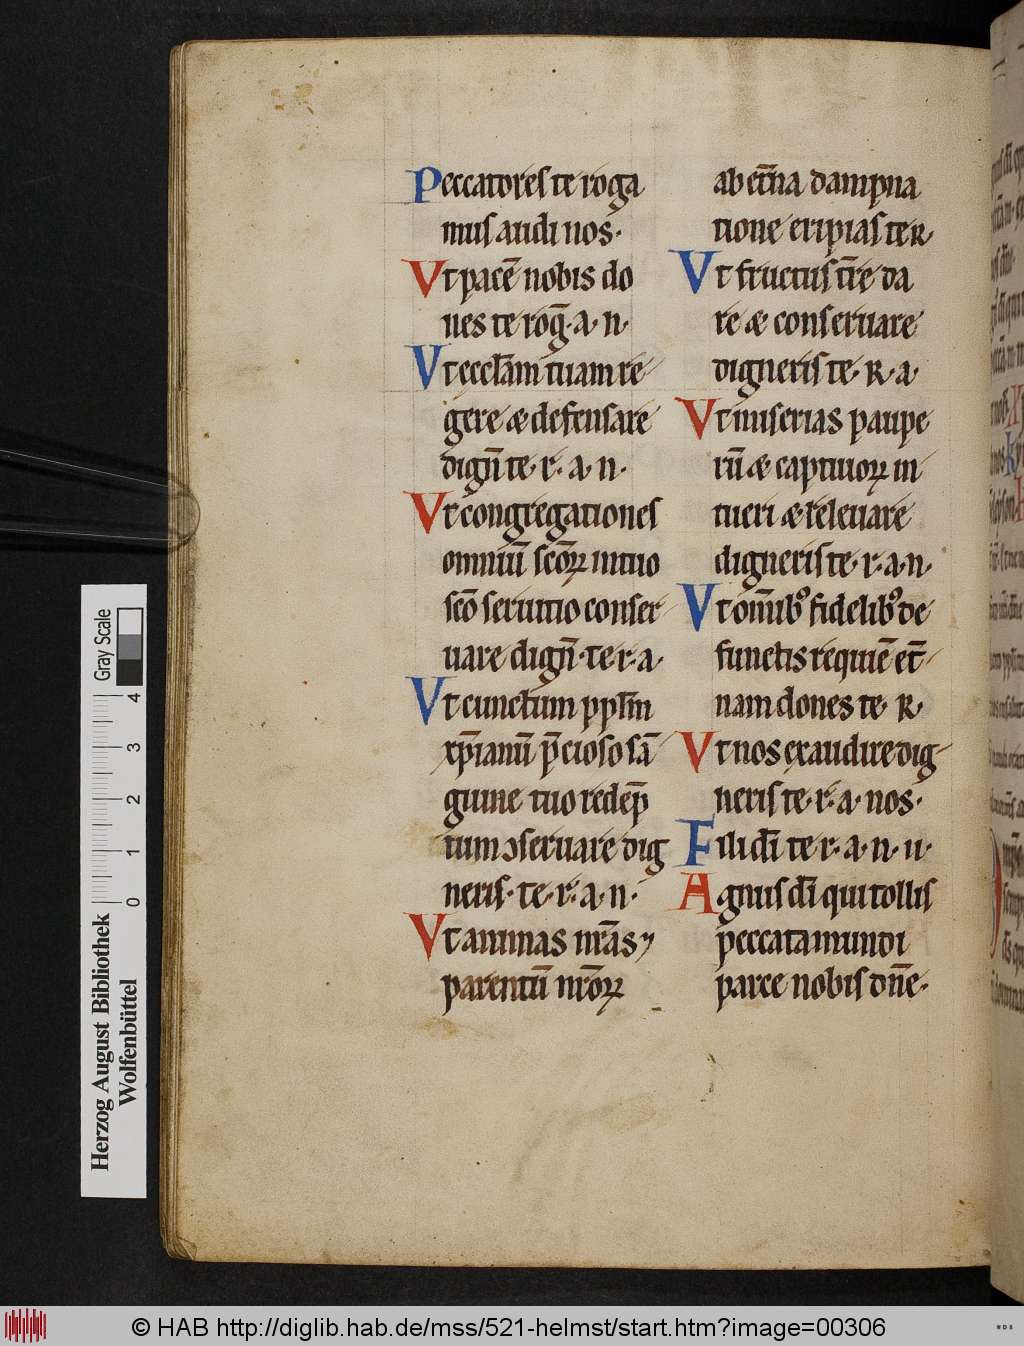 Peccatores te roga
mus audi nos·
Vt pacē nobis do
nes te rog̅·a·n·
Vt eccl̅am tuam re
gere & defensare
dign̅ te·r·a·n·
Vt congregationes
omniū sc̅oꝝ in tuo
sc̅o seruitio conser
uare dign̅·te·r·a·
Vt cunctum ppl̅m
xp̅ianū p̅cioso sā
guine tuo redēp
tum ↄseruare dig
neris·te·r·a·n·
Vt animas nr̅as ⁊
parentū nr̅oꝝ
ab et̅na dampna
tione eripias te R·
Vt fructus t̅re da
re & conseruare
digneris te·R·a·
Vt miserias paupe
rū & captiuoꝝ in
tueri & releuare
digneris te·r·a·n·
Vt om̅ibꝰ fidelibꝰ de
functis requiē et̅
nam dones te·R·
Vt nos exaudire dig
neris te·r·a·nos·
Fili di̅ te r·a·n·u·
Agnus di̅ qui tollis
peccata mundi
parce nobis dn̅e·
Gray Scale
0 1 2 3 4
Herzog August Bibliothek
Wolfenbüttel
© HAB http://diglib.hab.de/mss/521-helmst/start.htm?image=00306